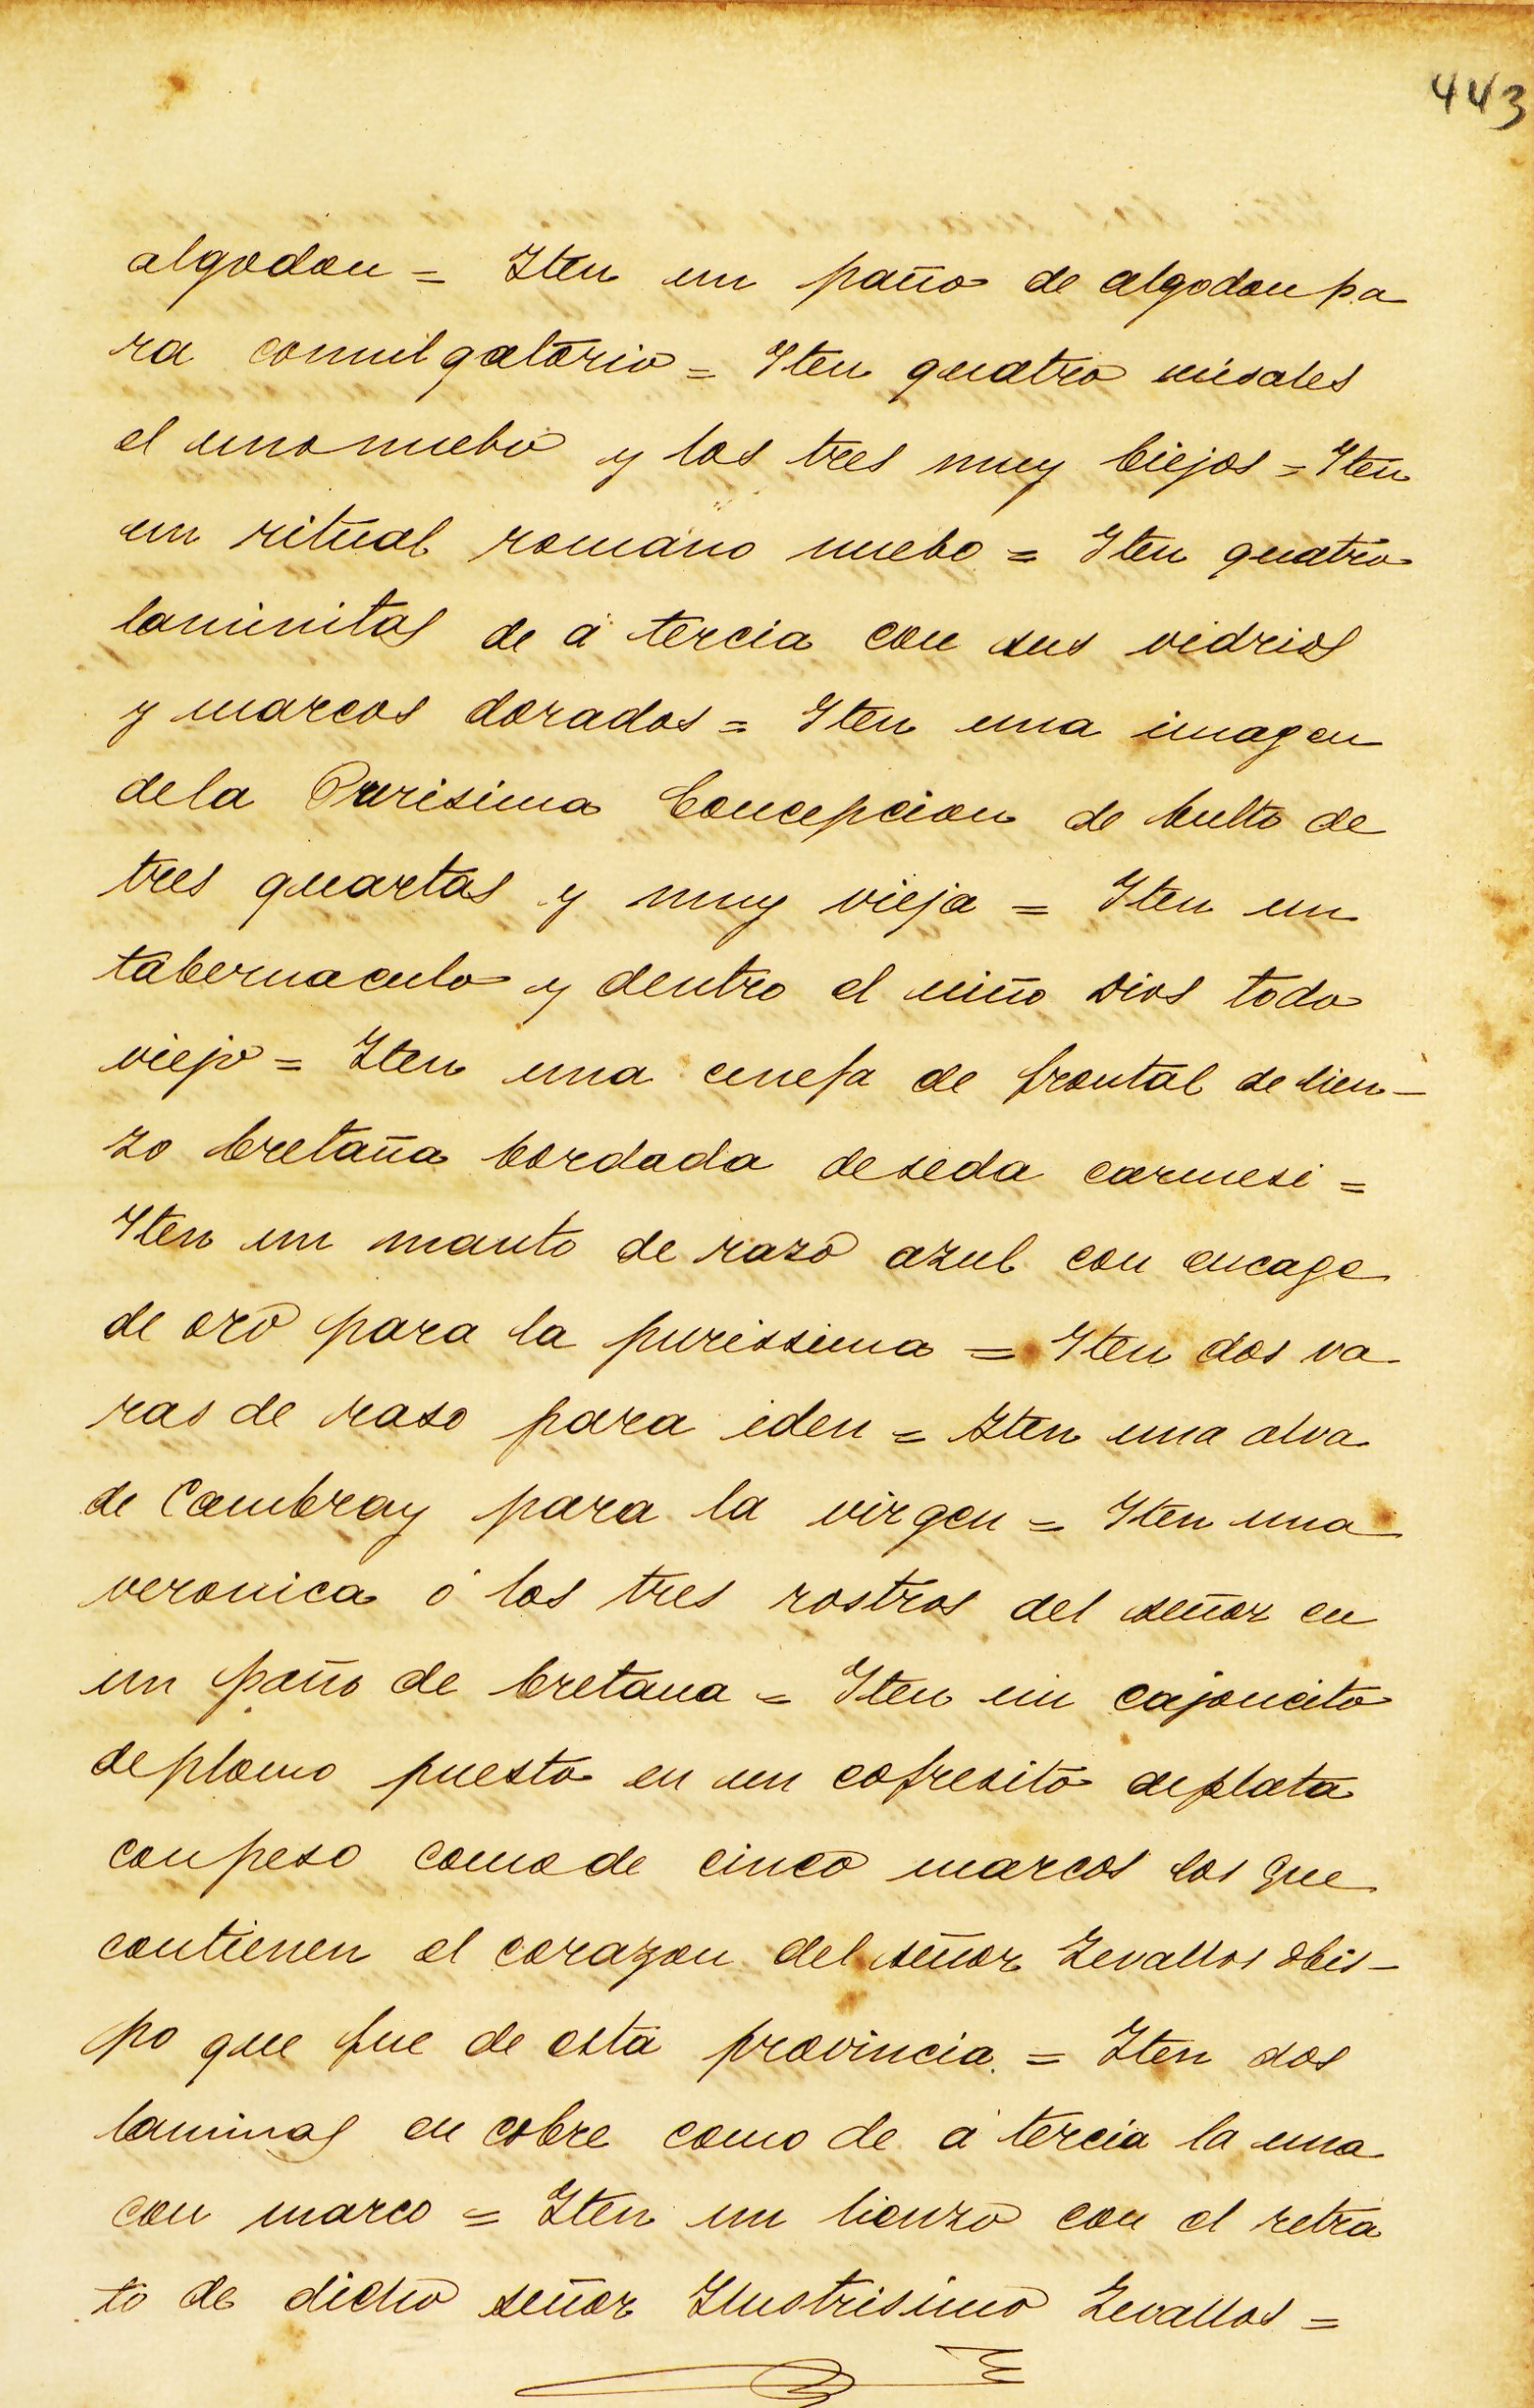 443
algodon = Iten un paño de algodon pa
ra comulgatorio = Iten quatro misales
el uno nuebo y los tres muy biejos = Iten
un ritual romano nuebo = Iten quatro
laminitas de á tercia con sus vidrios
y marcos dorados = Iten una imagen
dela Purisima Concepcion de bulto de
tres quartas y muy vieja = Iten un
tabernaculo y dentro el niño Dios todo
viejo = Iten una cenefa de frontal de lien-
zo bretaña bordada de seda carmesi =
Iten un manto de razo azul con encage
de oro para la purissima = Iten dos va
ras de raso para iden = Iten una alva
de Cambray para la virgen = Iten una
veronica ó los tres rostros del señor en
un paño de bretana = Iten un cajoncito
de plomo puesto en un cofresito de plata
con peso como de cinco marcos los que
contienen el corazon del señor Zevallos obis-
po que fue de esta provincia. = Iten dos
laminas en cobre como de á tercia la una
con marco = Iten un lienzo con el retra
to de dicho señor Ilustrisimo Zevallos =